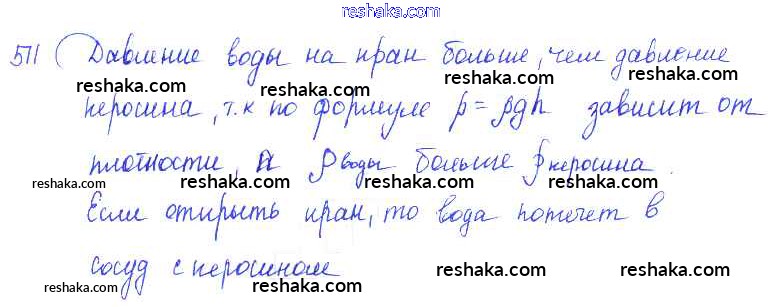 reshaka.com
511) Давление воды на кран больше, чем давление
reshaka.com reshaka.com reshaka.com
керосина, т.к по формуле p = ρgh зависит от
reshaka.com reshaka.com reshaka.com
плотности, а ρ воды больше ρ керосина.
reshaka.com reshaka.com reshaka.com reshaka.com
Если открыть кран, то вода потечет в
reshaka.com reshaka.com reshaka.com
сосуд с керосином
reshaka.com reshaka.com reshaka.com